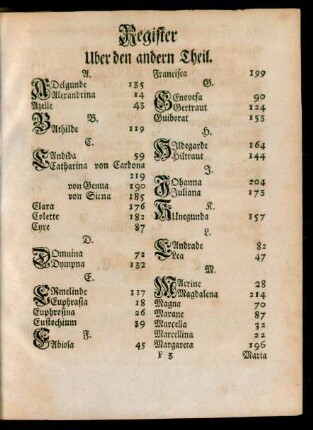 Register
Uber den andern Theil.
A.
ADelgunde 135
Alexandrina 14
Azelle 43
B.
BAthilde 119
C.
CAndida 59
Catharina von Cardona
219
von Genua 190
von Siena 185
Clara 176
Colette 182
Cyre 87
D.
DOmnina 72
Dympna 132
E.
ERmelinde 117
Euphrasia 18
Euphrosina 26
Eustochium 39
F.
FAbiola 45
Francisca 199
G.
GEnovefa 90
Gertraut 124
Guiborat 153
H.
HIldegarde 164
Hiltraut 144
J.
JOhanna 204
Juliana 173
K.
KUnegunda 157
L.
LAndrade 82
Lea 47
M.
MAcrine 28
Magdalena 214
Magna 70
Marane 87
Marcella 32
Marcellina 22
Margareta 196
F 3 Maria